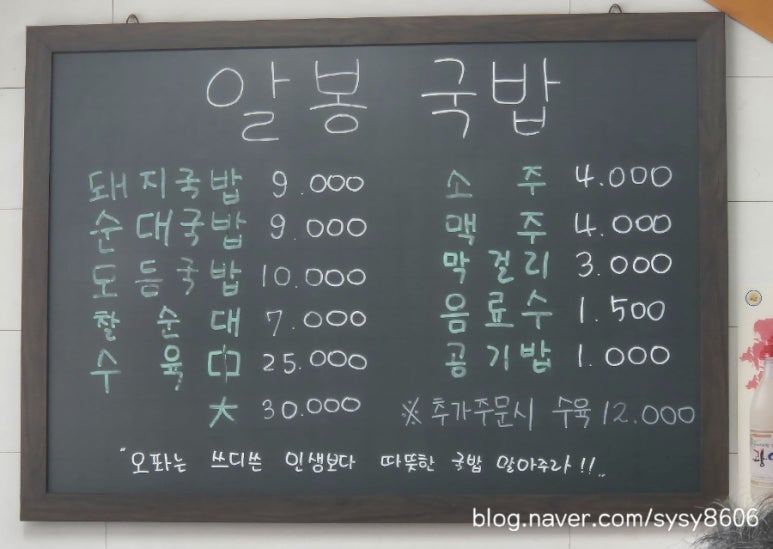 알봉 국밥
돼지국밥 9.000
순대국밥 9.000
모듬국밥 10.000
찰순대 7.000
수육 中 25.000
大 30.000
소주 4.000
맥주 4.000
막걸리 3.000
음료수 1.500
공기밥 1.000
※ 추가주문시 수육 12.000
"오파는 쓰디쓴 인생보다 따뜻한 국밥 말아주라!!"
blog.naver.com/sysy8606